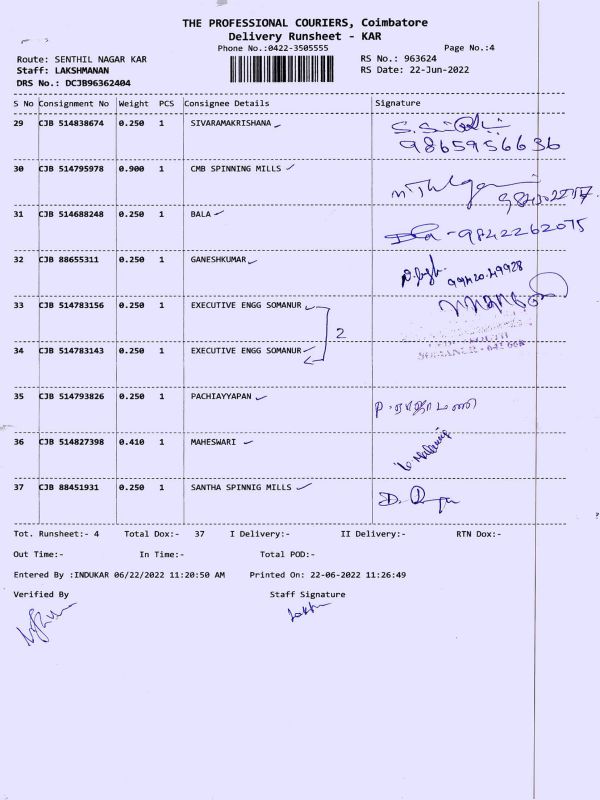 THE PROFESSIONAL COURIERS, Coimbatore
Delivery Runsheet - KAR
Phone No.:0422-3505555 Page No.:4
Route: SENTHIL NAGAR KAR RS No.: 963624
Staff: LAKSHMANAN RS Date: 22-Jun-2022
DRS No.: DCJB96362404
S No Consignment No Weight PCS Consignee Details Signature
29 CJB 514838674 0.250 1 SIVARAMAKRISHANA
9865956636
30 CJB 514795978 0.900 1 CMB SPINNING MILLS
31 CJB 514688248 0.250 1 BALA
- 9842262075
32 CJB 88655311 0.250 1 GANESHKUMAR
99420 49928
33 CJB 514783156 0.250 1 EXECUTIVE ENGG SOMANUR
2
34 CJB 514783143 0.250 1 EXECUTIVE ENGG SOMANUR
35 CJB 514793826 0.250 1 PACHIAYYAPAN
36 CJB 514827398 0.410 1 MAHESWARI
37 CJB 88451931 0.250 1 SANTHA SPINNIG MILLS
Tot. Runsheet:- 4 Total Dox:- 37 I Delivery:- II Delivery:- RTN Dox:-
Out Time:- In Time:- Total POD:-
Entered By :INDUKAR 06/22/2022 11:20:50 AM Printed On: 22-06-2022 11:26:49
Verified By Staff Signature